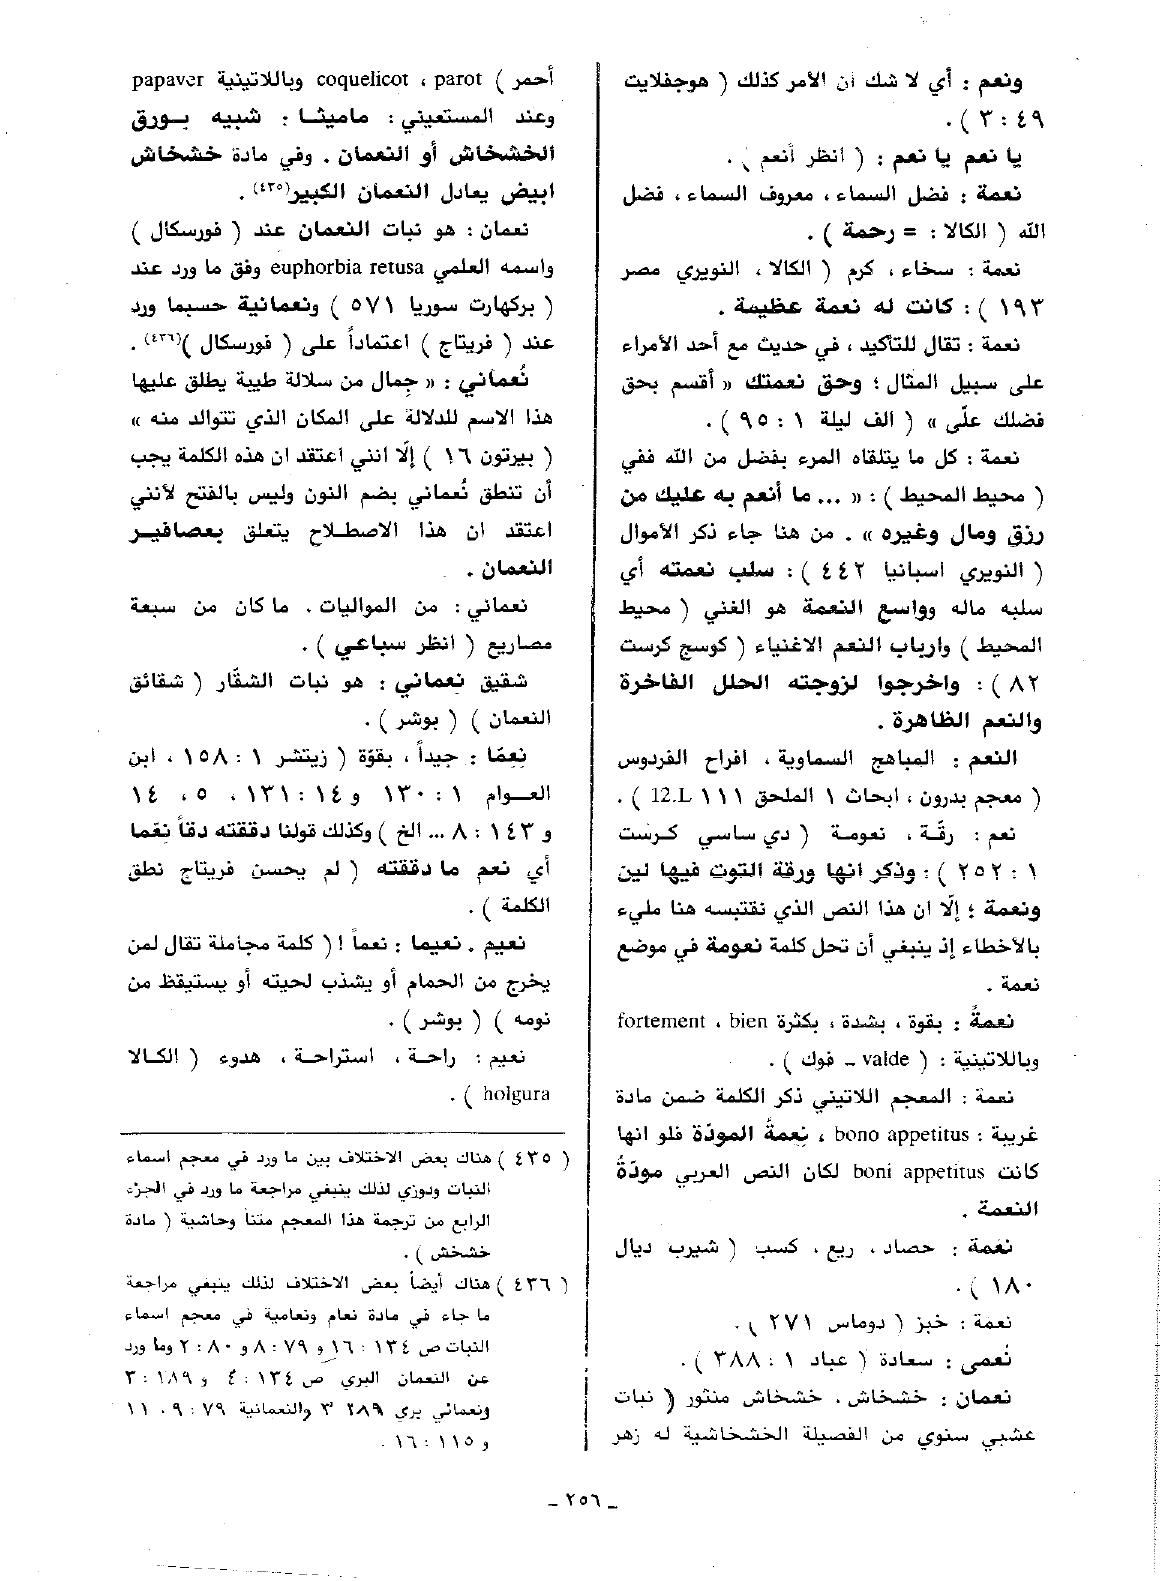 ونعم : أي لا شك أن الأمر كذلك ( هوجفلايت
٤٩ : ٣ ) .
يا نعم يا نعم : ( انظر أنعم ) .
نعمة : فضل السماء ، معروف السماء ، فضل
الله ( الكالا : = رحمة ) .
نعمة : سخاء ، كرم ( الكالا ، النويري مصر
١٩٣ ) : كانت له نعمة عظيمة .
نعمة : تقال للتأكيد ، في حديث مع أحد الأمراء
على سبيل المثال ؛ وحق نعمتك « أقسم بحق
فضلك علّي » ( الف ليلة ١ : ٩٥ ) .
نعمة : كل ما يتلقاه المرء بفضل من الله ففي
( محيط المحيط ) : « ... ما أنعم به عليك من
رزق ومال وغيره » . من هنا جاء ذكر الأموال
( النويري اسبانيا ٤٤٢ ) : سلب نعمته أي
سلبه ماله وواسع النعمة هو الغني ( محيط
المحيط ) وارباب النعم الاغنياء ( كوسج كرست
٨٢ ) : واخرجوا لزوجته الحلل الفاخرة
والنعم الظاهرة .
النعم : المباهج السماوية ، افراح الفردوس
( معجم بدرون ، ابحاث ١ الملحق ١١١ 12.L ) .
نعم : رقّة ، نعومة ( دي ساسي كرست
١ : ٢٥٢ ) : وذكر انها ورقة التوت فيها لين
ونعمة ؛ إلّا ان هذا النص الذي نقتبسه هنا مليء
بالأخطاء إذ ينبغي أن تحل كلمة نعومة في موضع
نعمة .
نعمةُ : بقوة ، بشدة ، بكثرة fortement ، bien
وباللاتينية : ( valde – فوك ) .
نعمة : المعجم اللاتيني ذكر الكلمة ضمن مادة
غريبة : bono appetitus ، نِعمةُ المودّة فلو انها
كانت boni appetitus لكان النص العربي مودّةُ
النعمة .
نعمة : حصاد ، ريع ، كسب ( شيرب ديال
١٨٠ ) .
نعمة : خبز ( دوماس ٢٧١ ) .
نُعمى : سعادة ( عباد ١ : ٣٨٨ ) .
نعمان : خشخاش ، خشخاش منثور ( نبات
عشبي سنوي من الفصيلة الخشخاشية له زهر
أحمر ) coquelicot ، parot وباللاتينية papaver
وعند المستعيني : ماميثا : شبيه بورق
الخشخاش أو النعمان . وفي مادة خشخاش
ابيض يعادل النعمان الكبير(٤٣٥) .
نعمان : هو نبات النعمان عند ( فورسكال )
واسمه العلمي euphorbia retusa وفق ما ورد عند
( بركهارت سوريا ٥٧١ ) ونعمانية حسبما ورد
عند ( فريتاج ) اعتماداً على ( فورسكال )(٤٣٦) .
نُعماني : « جِمال من سلالة طيبة يطلق عليها
هذا الاسم للدلالة على المكان الذي تتوالد منه »
( بيرتون ١٦ ) إلّا انني اعتقد ان هذه الكلمة يجب
أن تنطق نُعماني بضم النون وليس بالفتح لأنني
اعتقد ان هذا الاصطلاح يتعلق بعصافير
النعمان .
نعماني : من المواليات . ما كان من سبعة
مصاريع ( انظر سباعي ) .
شقيق نعماني : هو نبات الشقّار ( شقائق
النعمان ) ( بوشر ) .
نِعِمّا : جيداً ، بقوّة ( زيتشر ١ : ١٥٨ ، ابن
العوام ١ : ١٣٠ و ١٤ : ١٣١ ، ٥ ، ١٤
و ١٤٣ : ٨ ... الخ ) وكذلك قولنا دققته دقاً نعّما
أي نعم ما دققته ( لم يحسن فريتاج نطق
الكلمة ) .
نعيم . نعيما : نعماً !( كلمة مجاملة تقال لمن
يخرج من الحمام أو يشذب لحيته أو يستيقظ من
نومه ) ( بوشر ) .
نعيم : راحة ، استراحة ، هدوء ( الكالا
holgura ) .
( ٤٣٥ ) هناك بعض الاختلاف بين ما ورد في معجم اسماء
النبات ودوزي لذلك ينبغي مراجعة ما ورد في الجزء
الرابع من ترجمة هذا المعجم متناً وحاشية ( مادة
خشخش ) .
( ٤٣٦ ) هناك أيضاً بعض الاختلاف لذلك ينبغي مراجعة
ما جاء في مادة نعام ونعامية في معجم اسماء
النبات ص ١٣٤ : ١٦ و ٧٩ : ٨ و ٨٠ : ٢ وما ورد
عن النعمان البري ص ١٣٤ : ٤ و ١٨٩ : ٣
ونعماني بري ١٨٩ ٣ والنعمانية ٧٩ : ٩ ، ١١
و ١١٥ : ١٦ .
– ٢٥٦ –